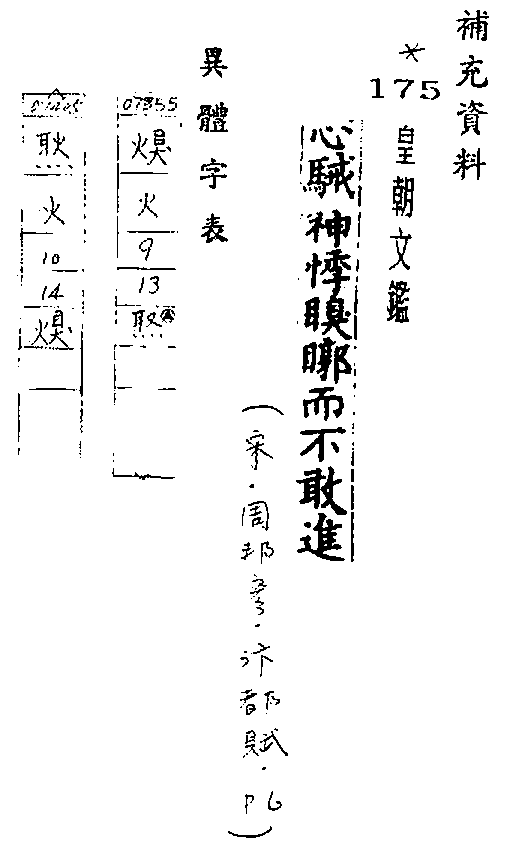 補充資料
*
175
皇朝文鑑
心駴神悸瞁而不敢進
(宋.周邦彥.汴都賦.P6)
異體字表
07855
火
9
13
耿
火
10
14